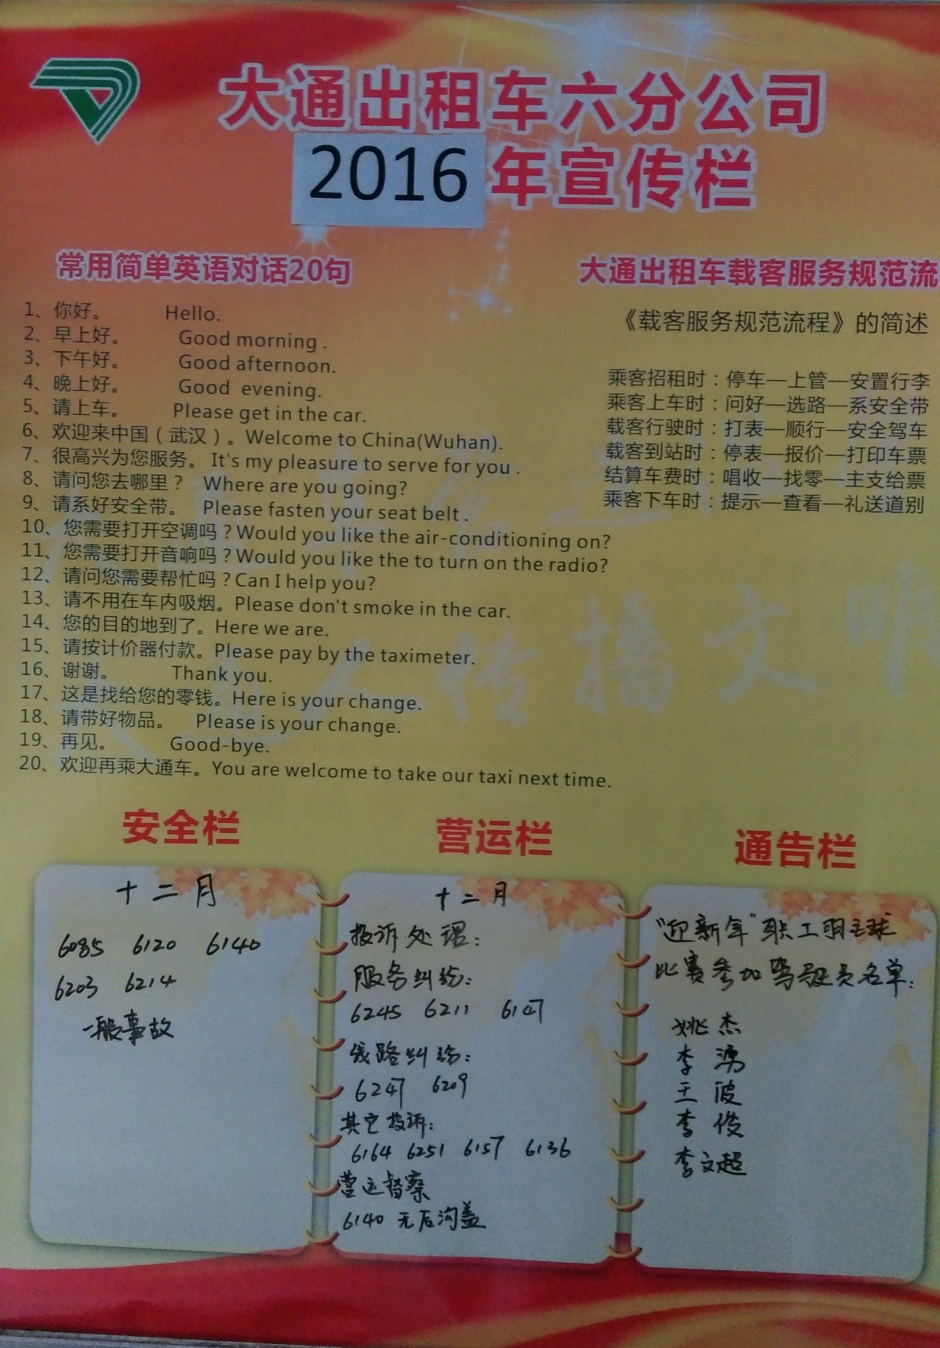 大通出租车六分公司
2016年宣传栏
常用简单英语对话20句
1、你好。 Hello.
2、早上好。 Good morning .
3、下午好。 Good afternoon.
4、晚上好。 Good evening.
5、请上车。 Please get in the car.
6、欢迎来中国（武汉）。Welcome to China(Wuhan).
7、很高兴为您服务。 It's my pleasure to serve for you .
8、请问您去哪里？ Where are you going?
9、请系好安全带。 Please fasten your seat belt .
10、您需要打开空调吗？Would you like the air-conditioning on?
11、您需要打开音响吗？Would you like the to turn on the radio?
12、请问您需要帮忙吗？Can I help you?
13、请不用在车内吸烟。Please don't smoke in the car.
14、您的目的地到了。Here we are.
15、请按计价器付款。Please pay by the taximeter.
16、谢谢。 Thank you.
17、这是找给您的零钱。Here is your change.
18、请带好物品。 Please is your change.
19、再见。 Good-bye.
20、欢迎再乘大通车。You are welcome to take our taxi next time.
大通出租车载客服务规范流
《载客服务规范流程》的简述
乘客招租时：停车—上管—安置行李
乘客上车时：问好—选路—系安全带
载客行驶时：打表—顺行—安全驾车
载客到站时：停表—报价—打印车票
结算车费时：唱收—找零—主支给票
乘客下车时：提示—查看—礼送道别
传播文明
安全栏
十二月
6085 6120 6140
6203 6214
一般事故
营运栏
十二月
投诉处理：
服务纠纷：
6245 6211 6147
线路纠纷：
6247 6209
其它投诉：
6164 6251 6157 6136
营运督察
6140 无后沟盖
通告栏
"迎新年"职工羽毛球
比赛参加驾驶员名单：
姚杰
李勇
王波
李俊
李文超